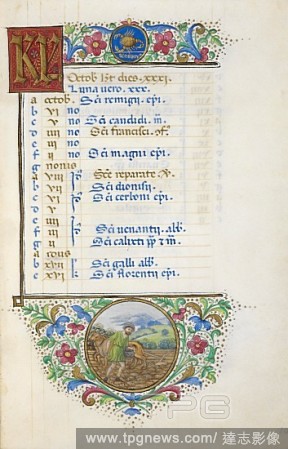 KL
Octob hȝt dies. xxxi.
Luna vero. xxx.
a octob. Sci remigij epi.
b vi no
c v no Sci candidi m.
d iiii no Sci francisci
e iii no
f ii no Sci magni epi.
g nonis
a viii Scē reparate
b vii Sci dionisij
c vi Sci cerloni epi.
d v
e iiii Sci venantij abb.
f iii Sci calixti pp & m.
g ii
a idus
b xvii k Sci galli abb.
c xvi k Sci florentij epi.
PG
www.tpgnews.com/達志影像